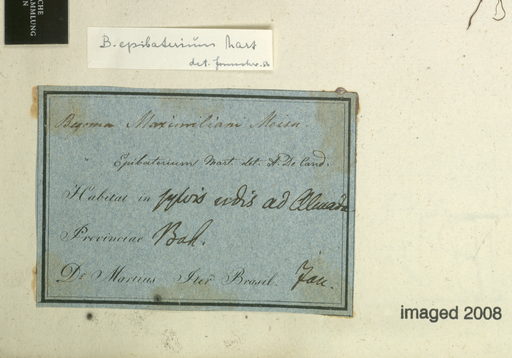 CHE
MMLUNG
EN
B. epibaterium Mart
det.
Begonia Maximiliani
Epibaterium Mart. det. A. De Cand.
Habitat in sylvis udis ad Almada
Provinciae Bah.
Dr. Martius Iter Brasil. Jan.
imaged 2008